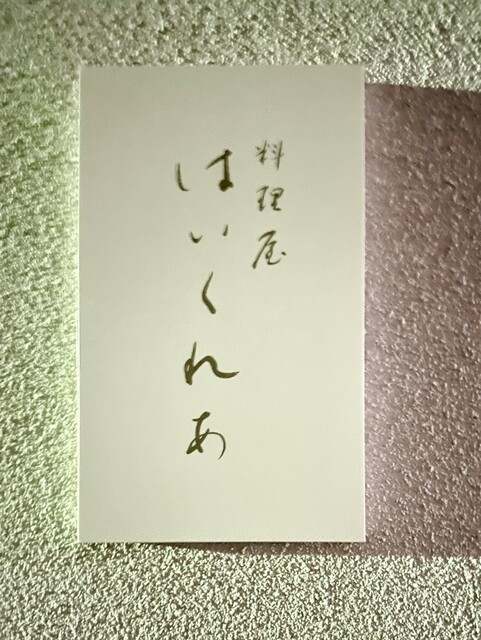 料理屋
はいくれあ